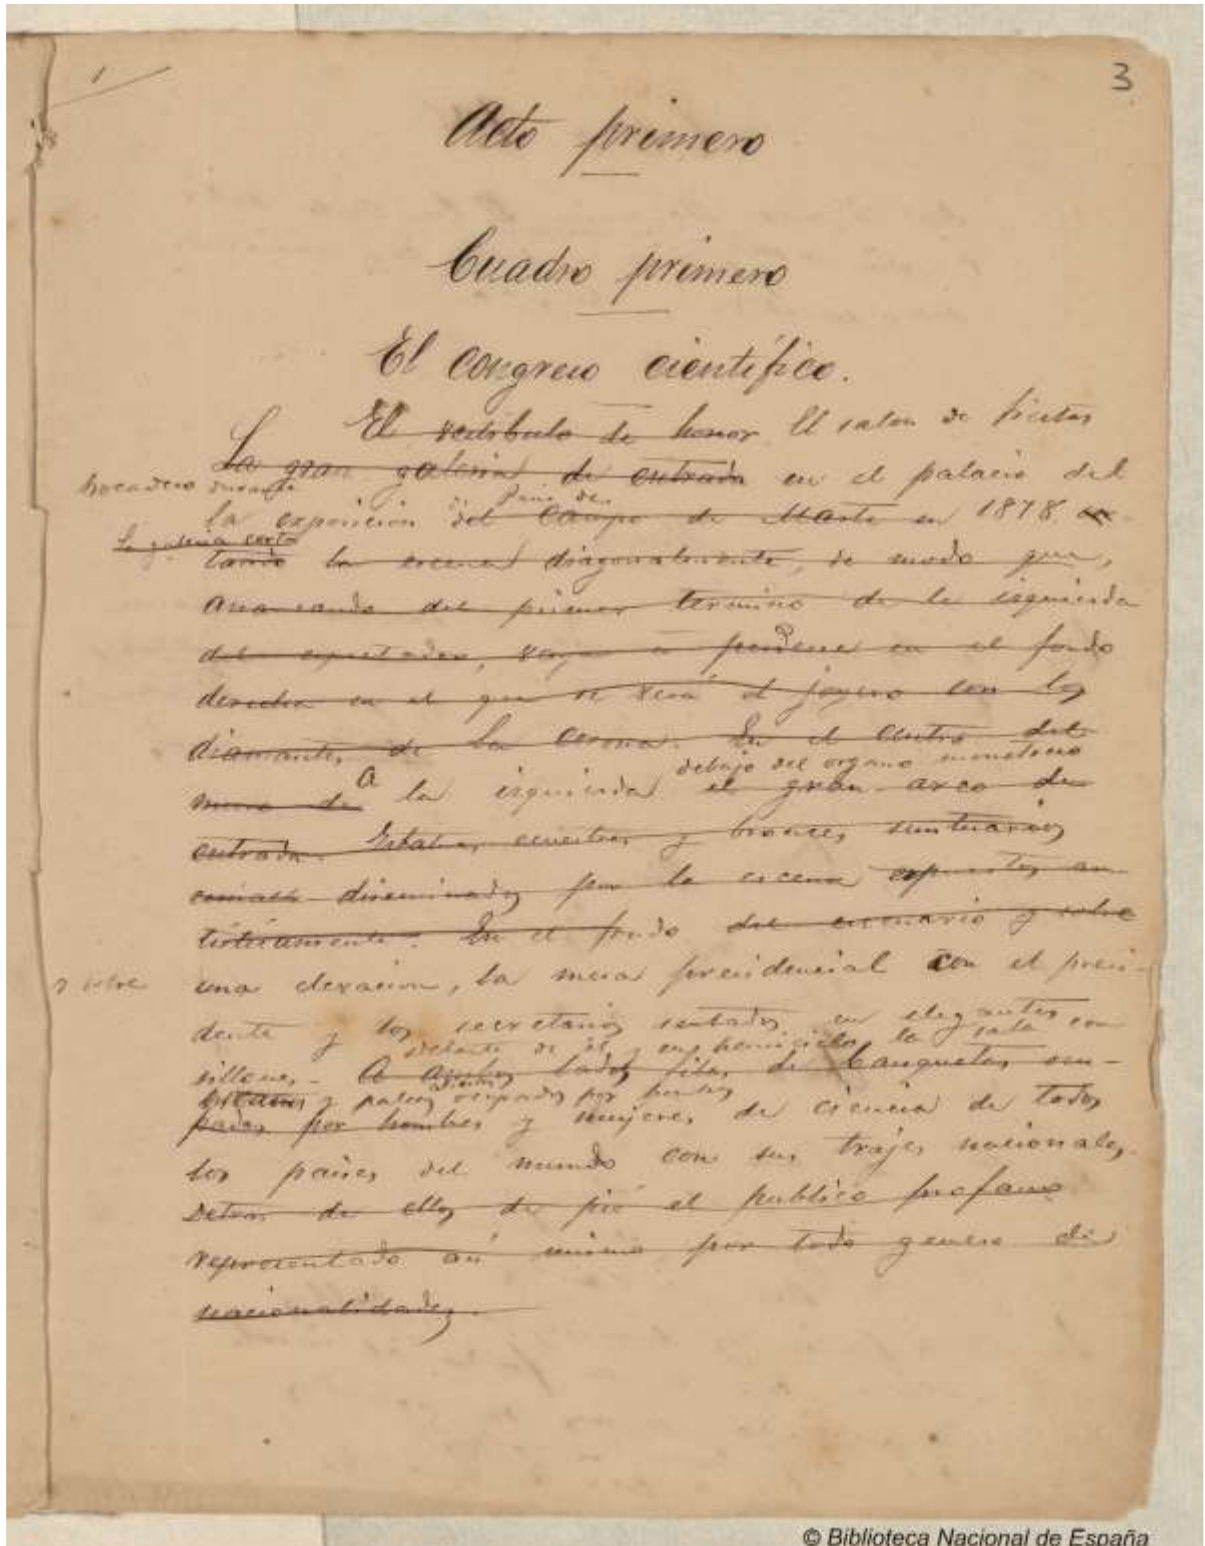 1
3
Acto primero
Cuadro primero
El congreso científico.
El vestíbulo de honor El salon de fiestas
La gran galeria de entrada en el palacio del
Trocadero durante
la exposición del Campo de Marte en 1878
de Paris de
la galeria corta
tando la escena diagonalmente, de modo que,
arrancando del primer termino de la izquierda
del espectador, vaya a perderse en el fondo
derecha en el que se verá el joyero con los
diamantes de la Corona. En el centro del
debajo del organo monstruo
muro de A la izquierda el gran arco de
entrada. Estatuas ecuestres y bronces suntuarios
diseminados por la escena expuestos ar-
tisticamente. En el fondo del escenario y sobre
y sobre
una elevacion, la mesa presidencial con el presi-
dente y los secretarios sentados en elegantes
delante de él y en hemiciclo la sala con
sillones. A ambos lados filas de banquetas ocu-
butacas y palcos ocupados por
pados por hombres y mujeres de ciencia de todos
los paises del mundo con sus trajes nacionales.
Detras de ellos de pié el publico profano
representado así mismo por todo genero de
nacionalidades.
© Biblioteca Nacional de España